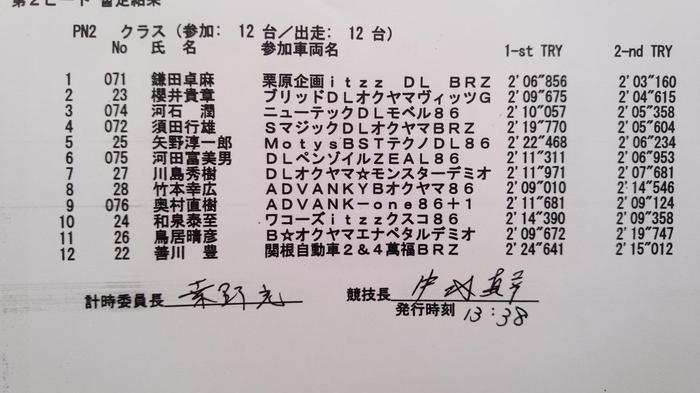 第2ヒート 暫定結果
PN2 クラス (参加: 12 台/出走: 12 台)
No 氏 名 参加車両名 1-st TRY 2-nd TRY
1 071 鎌田卓麻 栗原企画ｉｔｚｚ ＤＬ ＢＲＺ 2'06"856 2'03"160
2 23 櫻井貴章 ブリッドＤＬオクヤマヴィッツＧ 2'09"675 2'04"615
3 074 河石 潤 ニューテックＤＬモベル８６ 2'10"057 2'05"358
4 072 須田行雄 ＳマジックＤＬオクヤマＢＲＺ 2'19"770 2'05"604
5 25 矢野淳一郎 ＭｏｔｙｓＢＳＴテクノＤＬ８６ 2'22"468 2'06"234
6 075 河田富美男 ＤＬペンゾイルＺＥＡＬ８６ 2'11"311 2'06"953
7 27 川島秀樹 ＤＬオクヤマ☆モンスターデミオ 2'11"971 2'07"681
8 28 竹本幸広 ＡＤＶＡＮＫＹＢオクヤマ８６ 2'09"010 2'14"546
9 076 奥村直樹 ＡＤＶＡＮＫ－ｏｎｅ８６＋１ 2'11"681 2'09"124
10 24 和泉泰至 ワコーズｉｔｚｚクスコ８６ 2'14"390 2'09"358
11 26 鳥居晴彦 Ｂ☆オクヤマエナペタルデミオ 2'09"672 2'19"747
12 22 善川 豊 関根自動車２＆４萬福ＢＲＺ 2'24"641 2'15"012
計時委員長 競技長
発行時刻 13:38